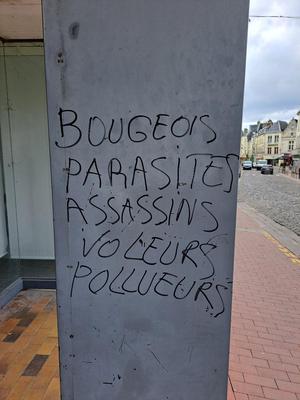 BOUGEOIS
PARASITES
ASSASSINS
VOLEURS
POLLUEURS